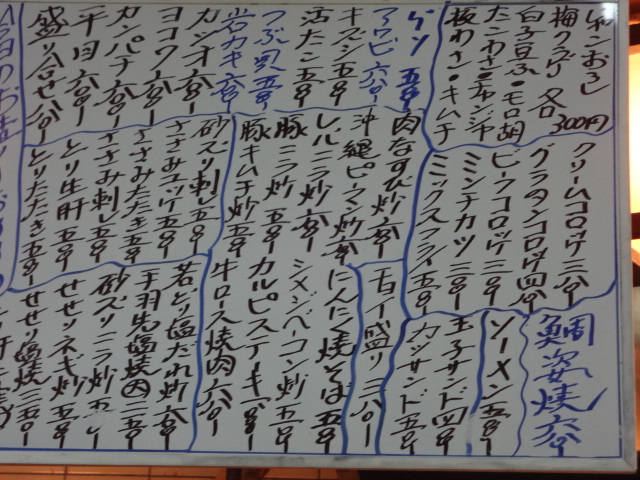 じゃこおろし
梅クラゲ 各300円
白子豆ふ・モロ胡
たこわさ・チャンジャ
板わさ・キムチ
ゲソ 五〇〇
アワビ 六〇〇
キズシ 五〇〇
活たこ 五〇〇
つぶ貝 五〇〇
岩カキ 六〇〇
カツオ 六〇〇
ヨコワ 六〇〇
カンパチ 六〇〇
平目 六〇〇
盛り合せ
クリームコロッケ 三八〇
グラタンコロッケ 四〇〇
ビーフコロッケ 三〇〇
ミンチカツ 三〇〇
ミックスフライ 五〇〇
肉なすび炒 六〇〇
沖縄ピーマン炒 六〇〇
レバニラ炒 六〇〇
豚ニラ炒 五〇〇
豚キムチ炒 五〇〇
砂ズリ刺し 五〇〇
ささみユッケ 五〇〇
ささみたたき 五〇〇
ささみ刺し 五〇〇
とり生肝 五〇〇
とりたたき 五〇〇
鯛姿焼 六〇〇
ソーメン 五〇〇
玉子サンド 四〇〇
カツサンド 五〇〇
盛り 三八〇
にんにく焼そば 五〇〇
シメジベーコン炒 五〇〇
カルビステーキ
牛ロース焼肉 六八〇
若とり塩だれ炒 六〇〇
手羽先塩焼
砂ズリニラ炒
せせりネギ炒 五〇〇
せせり塩焼 三五〇